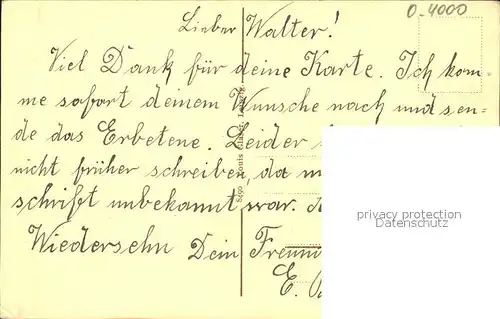 O-4000
Lieber Walter!
Viel Dank für deine Karte. Ich kom-
me sofort deinem Wunsche nach und sen-
de das Erbetene. Leider
nicht früher schreiben, da
schrift unbekannt war.
Wiedersehn Dein Freund
E.
8490 Louis Glaser, Leipzig.
privacy protection
Datenschutz